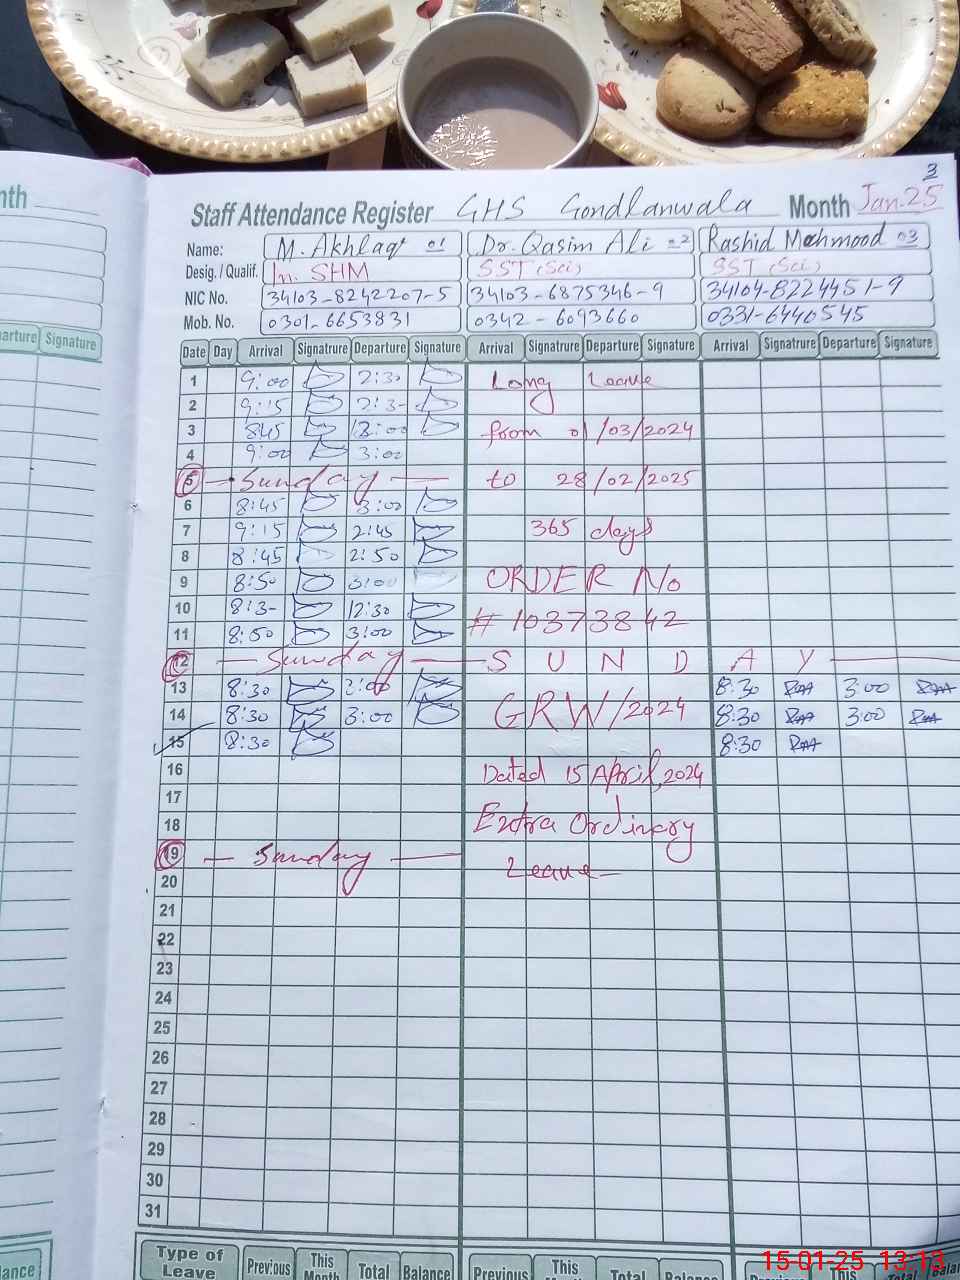 3
Staff Attendance Register GHS Gondlanwala Month Jan.25
Name: M. Akhlaq 01 Dr. Qasim Ali 02 Rashid Mehmood 03
Desig. / Qualif. In. SHM SST (Sci) SST (Sci)
NIC No. 34103-8242207-5 34103-6875346-9 34104-8224451-9
Mob. No. 0301-6653831 0342-6093660 0331-6440545
nth
arture Signature
Date Day Arrival Signatrure Departure Signature Arrival Signatrure Departure Signature Arrival Signatrure Departure Signature
1 9:00 2:30 Long Leave
2 9:15 2:3-
3 845 12:00 from 01/03/2024
4 9:00 3:00
5 - Sunday - to 28/02/2025
6 8:45 3:00
7 9:15 2:45 365 days
8 8:45 2:50
9 8:50 3:00 ORDER No
10 8:3- 12:30
11 8:50 3:00 # 10373842
12 - Sunday - S U N D A Y
13 8:30 2:00 8:30 3:00
14 8:30 3:00 GRW/2024 8:30 3:00
15 8:30 8:30
16 Dated 15 April, 2024
17
18 Extra Ordinary
19 - Sunday - Leave
20
21
22
23
24
25
26
27
28
29
30
31
lance
Type of Leave Previous This Month Total Balance Previous This Total Balance Previous This Total Balan
15-01-25 13:13